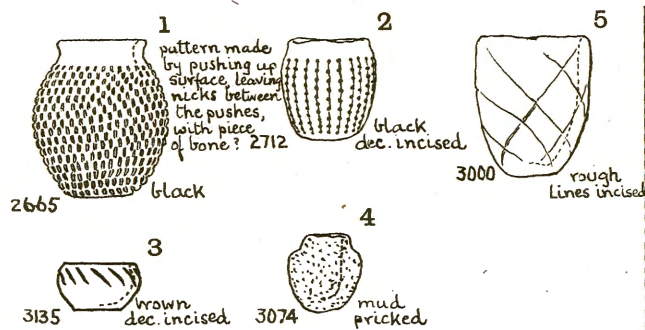 1
pattern made
by pushing up
surface, leaving
nicks between
the pushes,
with piece
of bone? 2712
2665
black
2
black
dec. incised
5
3000
rough
Lines incised
3
3135
brown
dec. incised
4
3074
mud
pricked